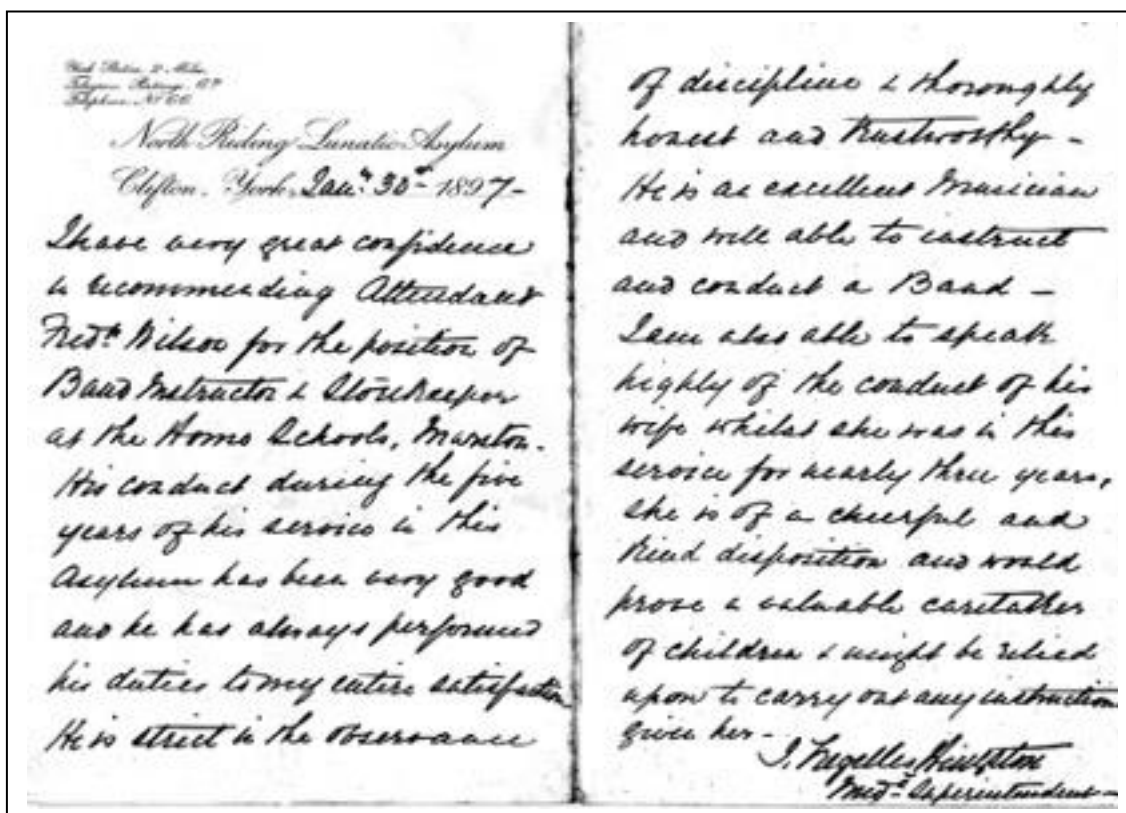 York Station 2 Miles.
North Riding Lunatic Asylum
Clifton, York, Jany. 30th 1897-
I have very great confidence
in recommending Attendant
Fredk. Wilson for the position of
Band Instructor & Storekeeper
at the Home Schools, Marston.
His conduct during the five
years of his service in this
Asylum has been very good
and he has always performed
his duties to my entire satisfaction
He is strict in the observance
of discipline & thoroughly
honest and trustworthy -
He is an excellent Musician
and well able to instruct
and conduct a Band -
I am also able to speak
highly of the conduct of his
wife whilst she was in this
service for nearly three years,
she is of a cheerful and
kind disposition and would
prove a valuable caretaker
of children & might be relied
upon to carry out any instruction
given her -
J.
Medl. Superintendent -